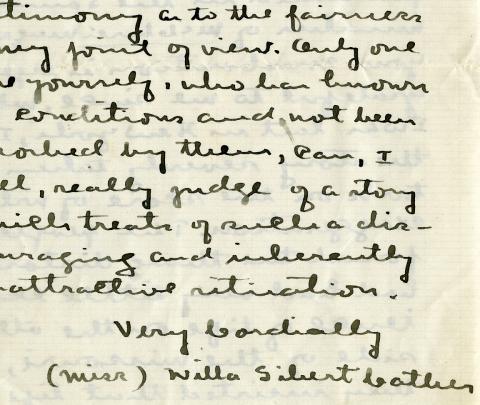 timony as to the fairness
my point of view. Only one
e yourself, who has known
conditions and not been
orbed by them, can, I
el, really judge of a story
hich treats of such a dis-
ouraging and inherently
attractive situation.
Very Cordially
(Miss) Willa Sibert Cather